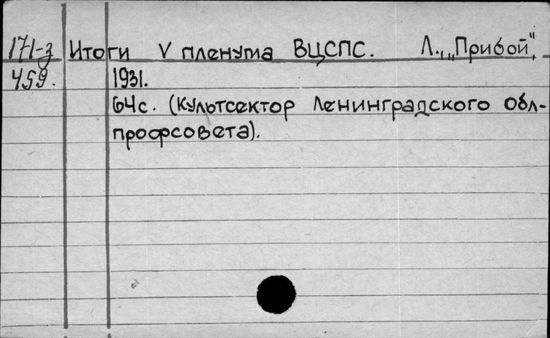 171-з Итоги V пленума ВЦСПС. Л., „Прибой",
459. 1931.
64с. (Культсектор Ленинградского обл-
профсовета).